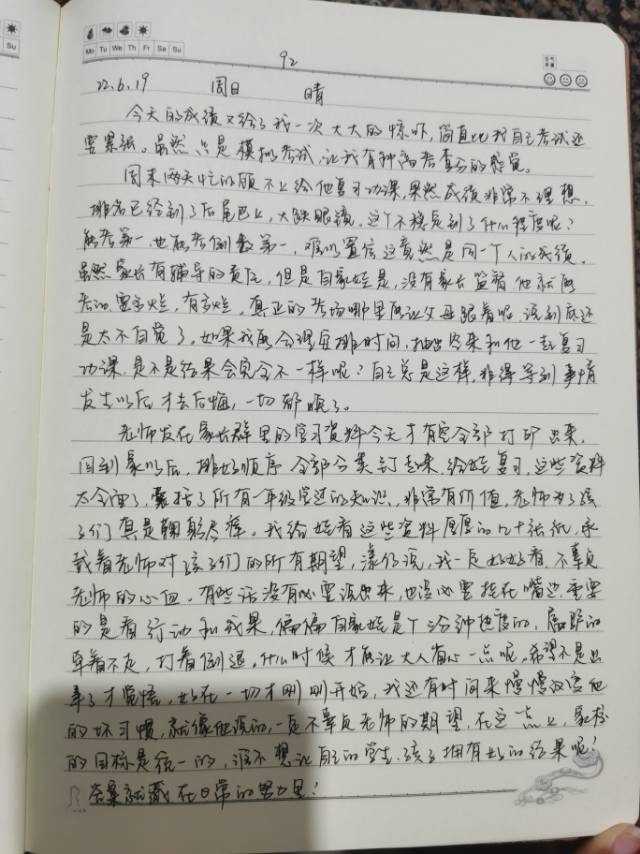 Su
Mo Tu We Th Fr Sa Su
92
22.6.19 周日 晴
今天的成绩又给了我一次大大的惊吓,简直比我自己考试还
要紧张。虽然只是模拟考试,让我有种高考查分的感觉。
周末两天忙的顾不上给他复习功课,果然成绩非常不理想,
排名已经到了后尾巴上,大跌眼镜,这个不稳定到了什么程度呢?
能考第一,也能考倒数第一,难以置信这竟然是同一个人的成绩。
虽然家长有辅导的责任,但是自家娃是,没有家长监督他就能
考的要多烂,有多烂,真正的考场哪里能让父母跟着呢,说到底还
是太不自觉了。如果我能合理安排时间,抽出空来和他一起复习
功课,是不是结果会完全不一样呢?自己总是这样,非得等到事情
发生以后才去后悔,一切都晚了。
老师发在家长群里的学习资料今天才有空全部打印出来,
回到家以后,排好顺序全部分类订起来,给娃复习,这些资料
太全面了,囊括了所有一年级学过的知识,非常有价值,老师为了孩
子们真是鞠躬尽瘁。我给娃看这些资料厚厚的几十张纸,承
载着老师对孩子们的所有期望,漾仔说,我一定好好看,不辜负
老师的心血。有些话没有必要说出来,也没必要挂在嘴边,重要
的是看行动和成果,偏偏自家娃是个三分钟热度的,属驴的
牵着不走,打着倒退。什么时候才能让大人省心一点呢,希望不是出
事了才觉悟,好在一切才刚刚开始,我还有时间来慢慢改变他
的坏习惯,就像他说的,一定不辜负老师的期望,在这一点上,家校
的目标是统一的,谁不想让自己的学生、孩子拥有好的结果呢!
答案就藏在日常的努力里!